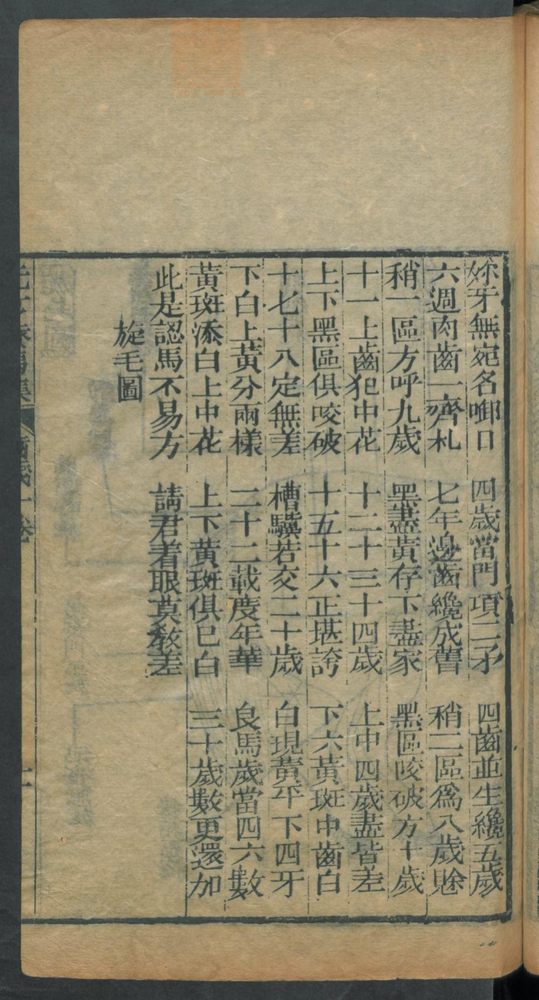 妳牙無痕名啣口　四歲當門項二牙　四齒並生纔五歲
六週肉齒一齊札　七年邊齒纔成舊　稍二區爲八歲賒
稍一區方呼九歲　黑盡黃存下盡家　黑區咬破方十歲
十一上齒犯中花　十二十三十四歲　上中四歲盡皆差
上下黑區俱咬破　十五十六正堪誇　下六黃斑中齒白
十七十八定無差　槽驥若交二十歲　白現黃平下四牙
下白上黃分兩樣　二十二載度年華　良馬歲當四六數
黃斑添白上中花　上下黃斑俱巳白　三十歲數更還加
此是認馬不易方　請君着眼莫教差
旋毛圖